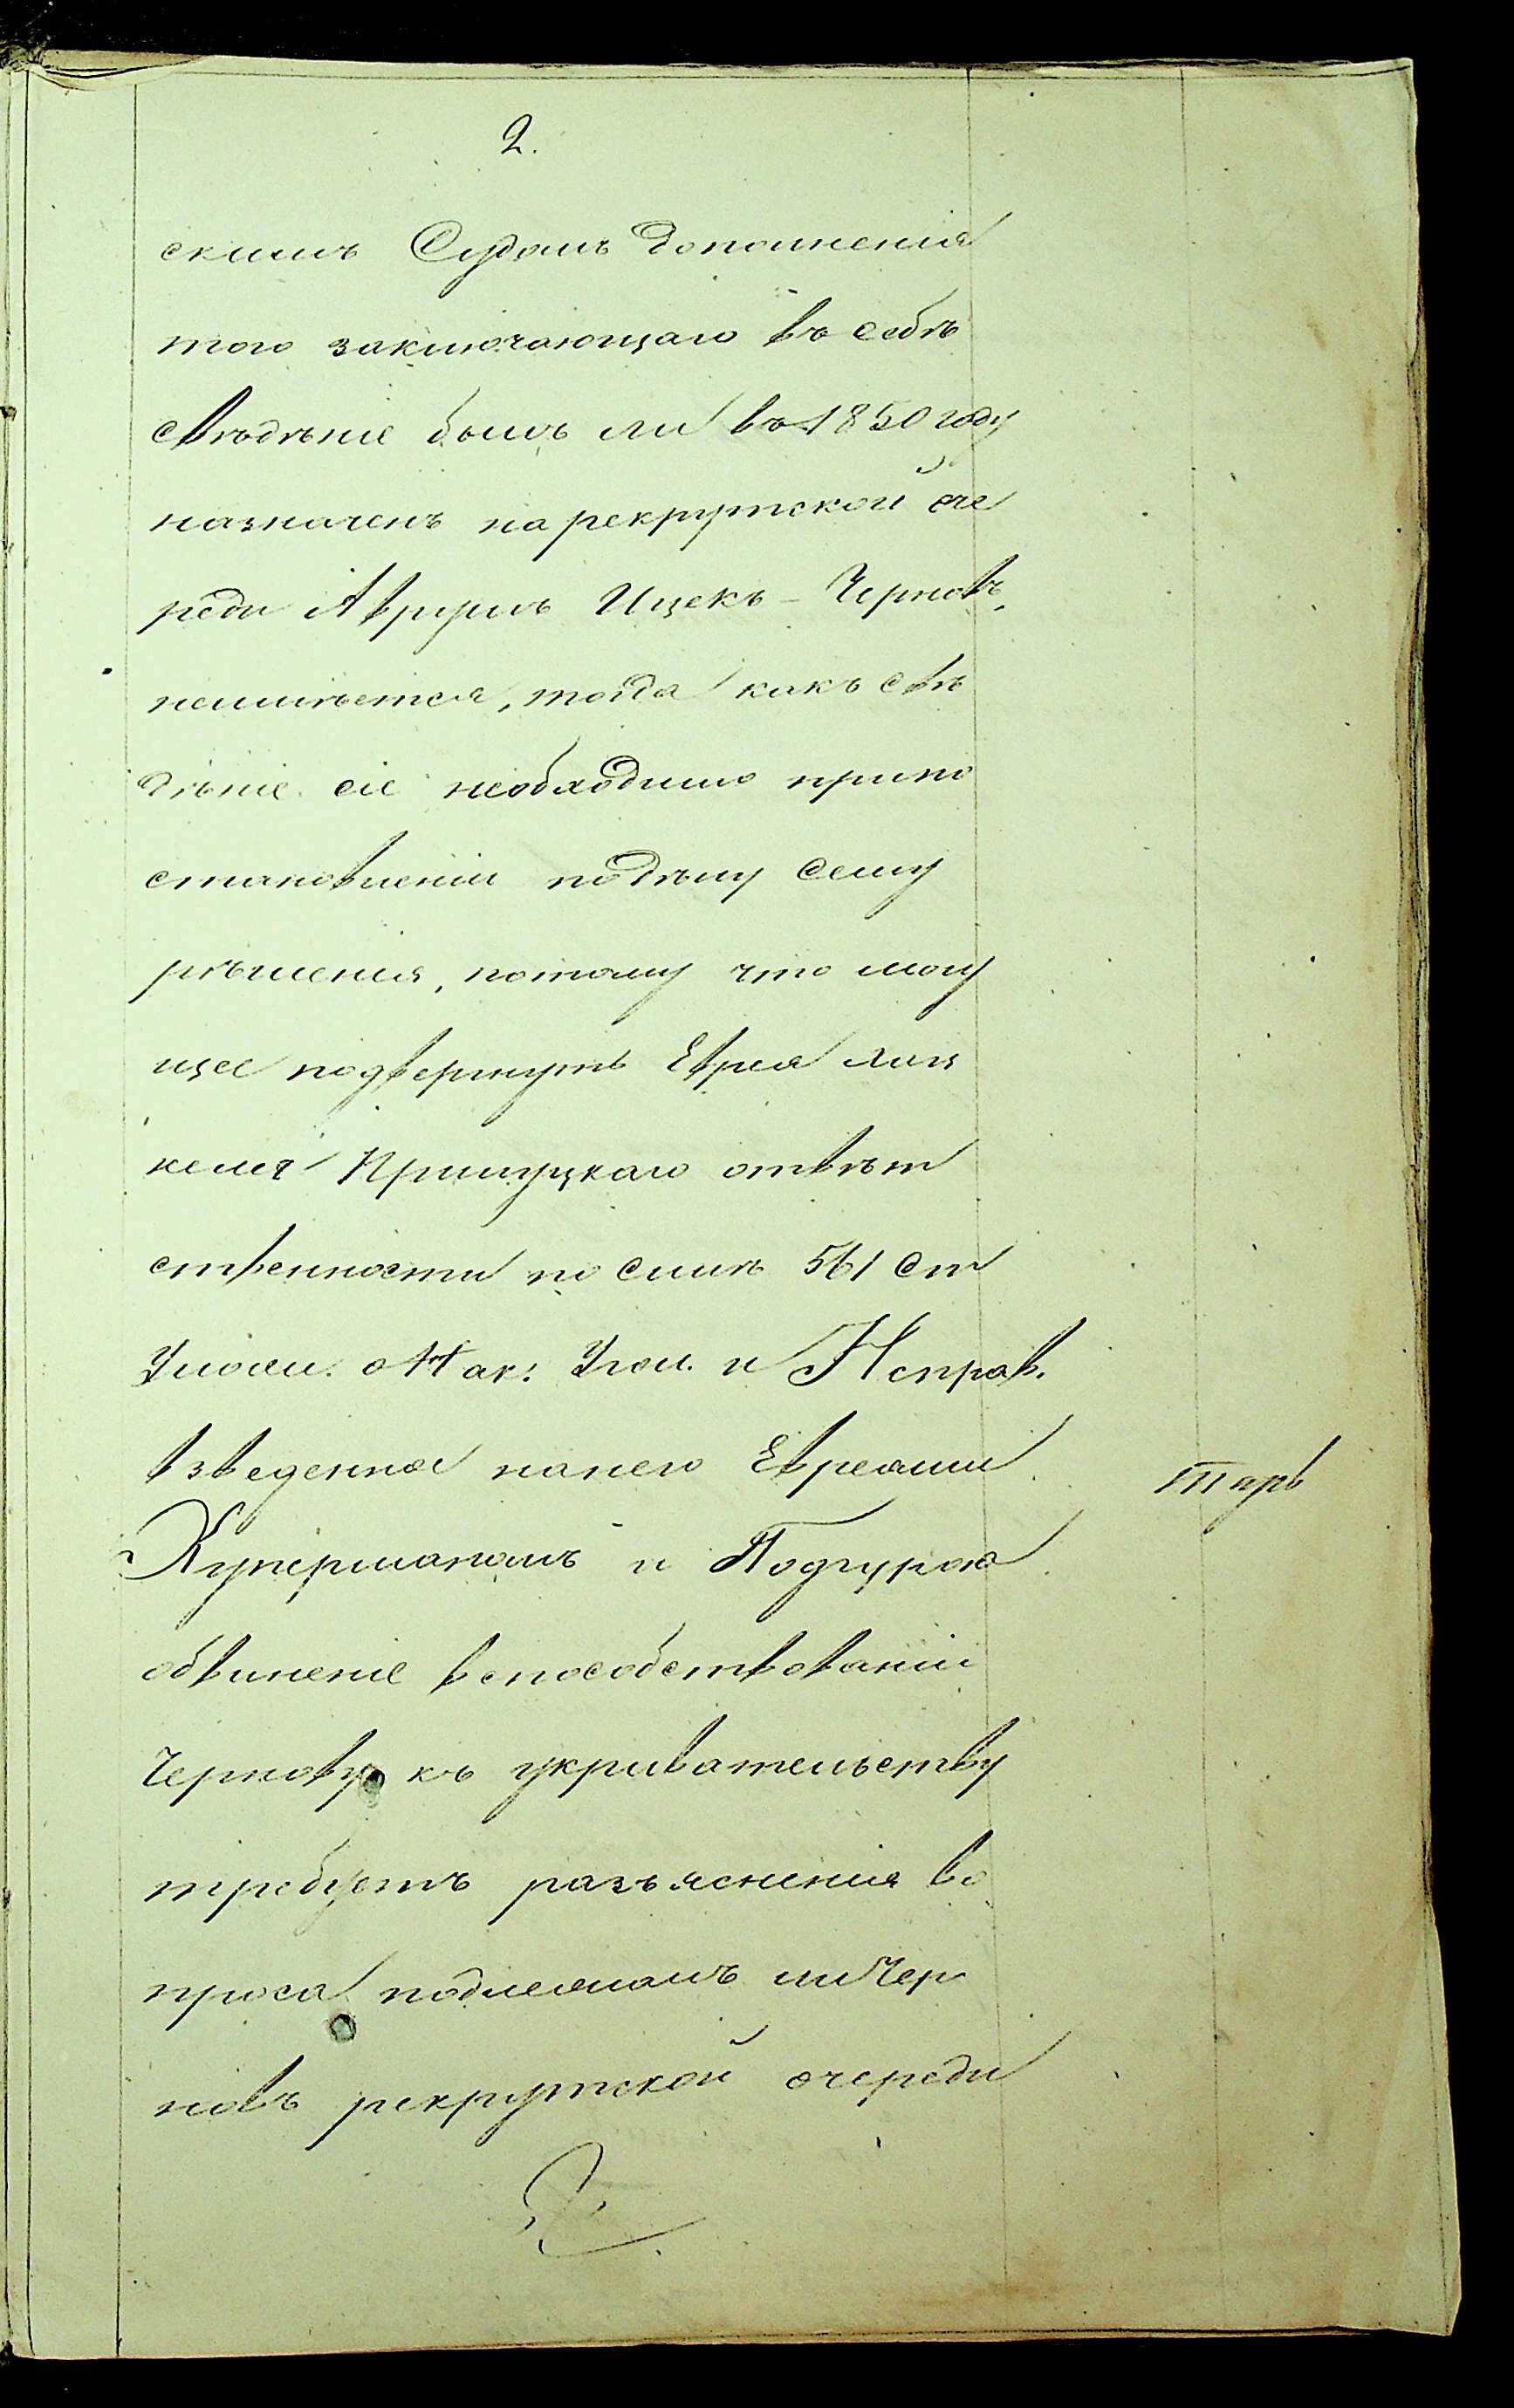 2.
скимъ Судомъ дополненія
того заключающаго въ себѣ
свѣдѣніе былъ ли въ 1850 году
назначенъ на рекрутской оче
реди Аврумъ Ицекъ - Черновъ,
неимѣется, тогда какъ свѣ
дѣніе сіе необходимо припо
становленіи подѣлу сему
рѣшенія, потому что могу
щее подвергнуть Еврея Янк
келя Прилуцкаго отвѣт
ственности по силѣ 561 ст
Улож. о Нак: Угол. и Исправ.
взведенное нанего Евреями
Куперманомъ и Подгурою
обвиненіе вспособствованіи
Чернову къ укривательству
требуетъ разъясненія во
проса подлежалъ ли Чер
новъ рекрутской очереди